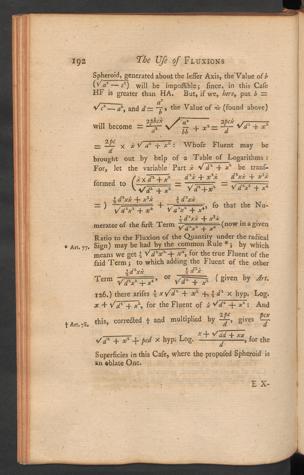 192 The Use of FLUXIONS
Spheroid, generated about the lesser Axis, the Value of b
(√a² − c²) will be impossible; since, in this Case
HF is greater than HA. But, if we, here, put b =
√c² − a², and d = a²/b, the Value of ẇ (found above)
will become = 2pbcẋ/a² √(a⁴/bb + x²) = 2pcẋ/d √d² + x²
= 2pc/d × ẋ√d² + x²: Whose Fluent may be
brought out by help of a Table of Logarithms:
For, let the variable Part ẋ√d² + x² be trans-
formed to (ẋ × d² + x²/√d² + x² = d²ẋ + x²ẋ/√d² + x² = d²xẋ + x³ẋ/√d²x² + x⁴
=) ½d²xẋ + x³ẋ/√d²x² + x⁴ + ½d²xẋ/√d²x² + x⁴, so that the Nu-
merator of the first Term ½d²xẋ + x³ẋ/√d²x² + x⁴ (now in a given
Ratio to the Fluxion of the Quantity under the radical
* Art. 77. Sign) may be had by the common Rule *; by which
means we get ½√d²x² + x⁴, for the true Fluent of the
said Term; to which adding the Fluent of the other
Term ½d²xẋ/√d²x² + x⁴, or ½d²ẋ/√d² + x² (given by Art.
126.) there arises ½x√d² + x² + ½d² × hyp. Log.
x + √d² + x², for the Fluent of ẋ√d² + x²: And
† Art. 78. this, corrected † and multiplied by 2pc/d, gives pcx/d
√d² + x² + pcd × hyp. Log. x + √dd + xx/d, for the
Superficies in this Case, where the proposed Spheroid is
an oblate One.
E X-